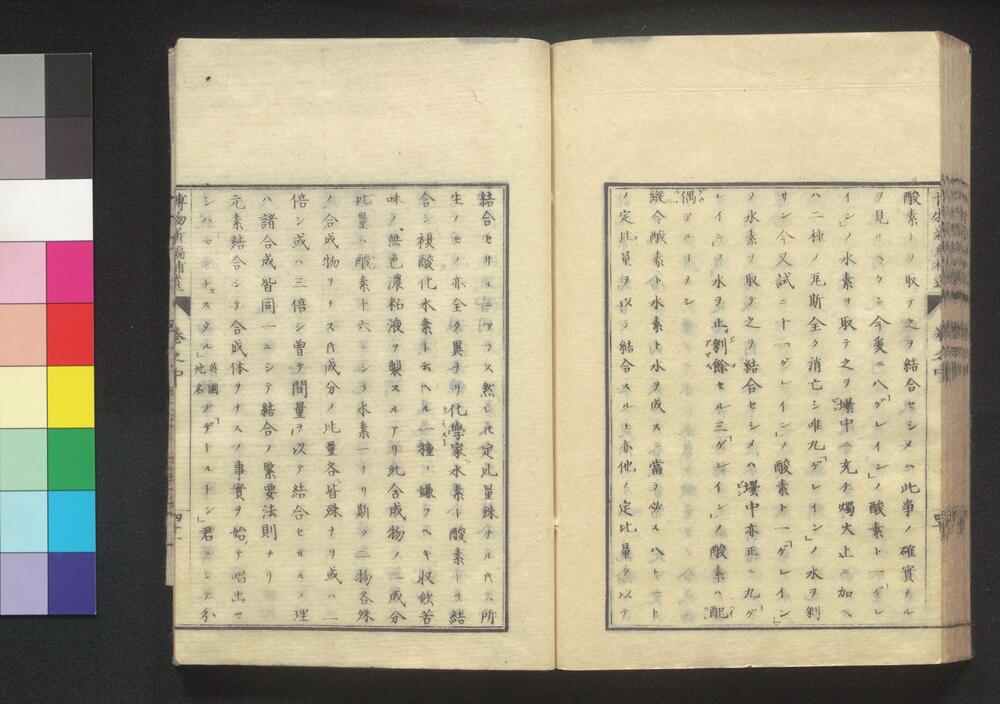 酸素トヲ取テ之ヲ結合セシメハ此事確實ナル
ヲ見ルヘクン今爰ニ八「ゲレイン」ノ酸素ト一「ゲレ
イン」ノ水素ヲ取テ之ヲ壜中ニ充チ燭火上ニ加ヘ
ハ二種ノ瓦斯全ク消亡シ唯九「ゲレイン」ノ水ヲ剰
サン今又試ニ十一「ゲレイン」ノ酸素ト一「ゲレイン」
ノ水素ヲ取テ之ヲ結合セシメハ壜中亦正ニ九「ゲ
レイン」ノ水ヲ止
剰餘セル三「ゲレイン」ノ酸素ハ配
偶
縦令酸素ト水素ト水ヲ成スニ當テ必ス八ト一ト
ノ定比量ヲ以テ結合スルト亦他ノ定比量ヲ以テ
結合セサルニアラス然レ𪜈定比量殊ナル𪜈ハ所
生ノモノ亦全ク異ナリ化學家水素ト酸素トヲ結
合シ複酸化水素ト云ヘル一種ノ嫌フヘキ収斂苦
味ノ無色濃粘液ヲ製スルアリ此合成物ノ二成分
比量ハ酸素十六ニシテ水素一ナリ斯ク二物各殊
ノ合成物ヲナス𪜈成分ノ比量各皆殊ナリ或ハ二
倍シ或ハ三倍シ曽テ間量ヲ以テ結合セサルノ理
ハ諸合成皆同一ニシテ結合ノ緊要法則ナリ
元素結合シテ合成体ヲナスノ事實ヲ始テ唱出セ
シハ「マンチェスタル」英國地名ノ「デールトン」君ニシテ分
博物新編補遺
卷之中
四十一